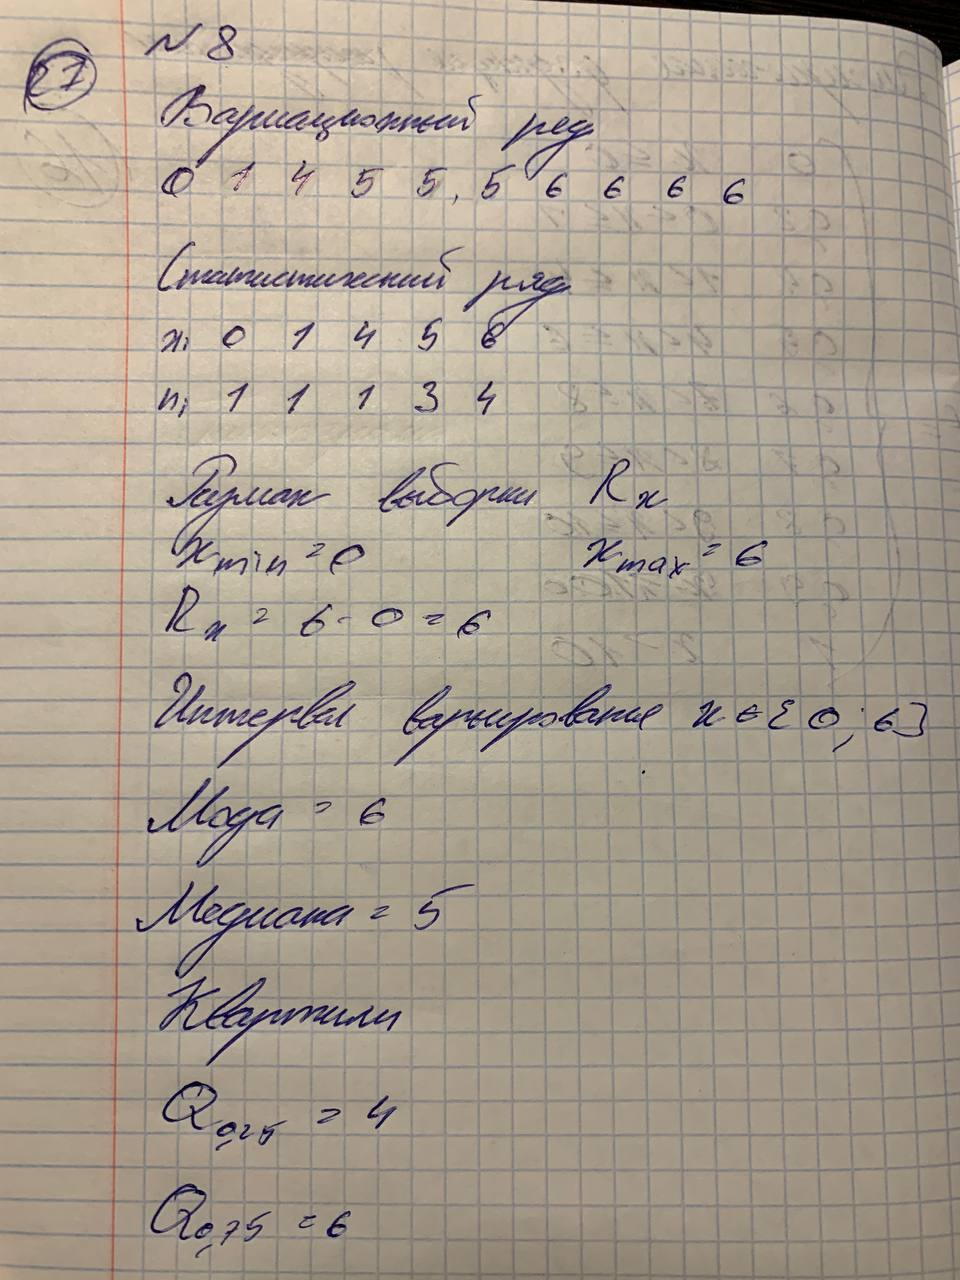 27
N 8
Вариационный ряд
0 1 4 5 5, 5 6 6 6 6
Статистический ряд
xi 0 1 4 5 6
ni 1 1 1 3 4
Размах выборки Rx
xmin = 0 xmax = 6
Rx = 6 - 0 = 6
Интервал варьирования x ∈ {0; 6}
Мода = 6
Медиана = 5
Квартили
Q0,25 = 4
Q0,75 = 6